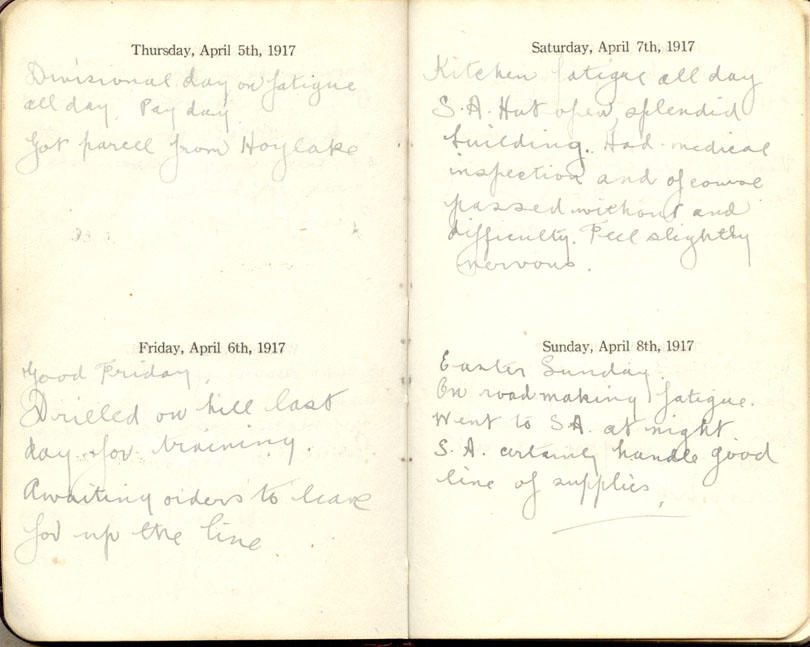 Thursday, April 5th, 1917
Divisional day on fatigue
all day. Pay day
Got parcel from Hoylake
Friday, April 6th, 1917
Good Friday.
Drilled on hill last
day for training.
Awaiting orders to leave
for up the line.
Saturday, April 7th, 1917
Kitchen fatigue all day
S.A. Hut open splendid
building. Had medical
inspection and of course
passed without and
difficulty. Feel slightly
nervous.
Sunday, April 8th, 1917
Easter Sunday.
On road making fatigue.
Went to S.A. at night.
S.A. certainly handle good
line of supplies.